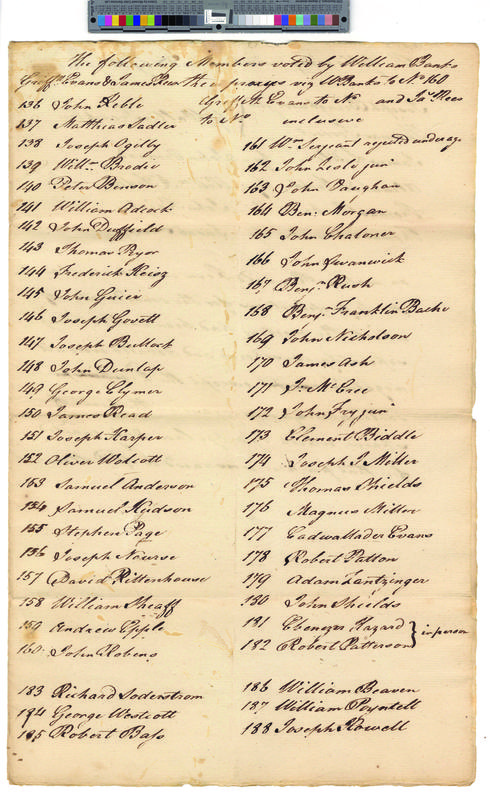 The following Members voted by William Banks
Griffth Evans & James Rees the proxys viz W Banks to No 160
Griffth Evans to No and Jas Rees
to No inclusive
136 John Keble
137 Matthias Sadler
138 Joseph Ogilby
139 Willm Brodie
140 Peter Benson
141 William Adcock
142 John Duffield
143 Thomas Pryor
144 Frederick
145 John Guier
146 Joseph Govett
147 Joseph Bullock
148 John Dunlap
149 George Clymer
150 James Read
151 Joseph Harper
152 Oliver Wolcott
153 Samuel Anderson
154 Samuel Hudson
155 Stephen Page
156 Joseph Nourse
157 David Rittenhouse
158 William Sheaff
159 Andrew Epple
160 John Robens
161 Wm Sergeant rejected under age
162 John Leslie junr
163 John Vaughan
164 Benj. Morgan
165 John Chaloner
166 John Swanwick
167 Benjn Rush
168 Benjn Franklin Bache
169 John Nicholson
170 James Ash
171 Jn McCree
172 John Fry junr
173 Clement Biddle
174 Joseph J Miller
175 Thomas Shields
176 Magnus Miller
177 Cadwallader Evans
178 Robert Patton
179 Adam Zantzinger
180 John Shields
181 Ebenezer Hazard
182 Robert Patterson } in person
183 Richard Soderstrom
184 George Westcott
185 Robert Bass
186 William Beaven
187 William Poyntell
188 Joseph Howell